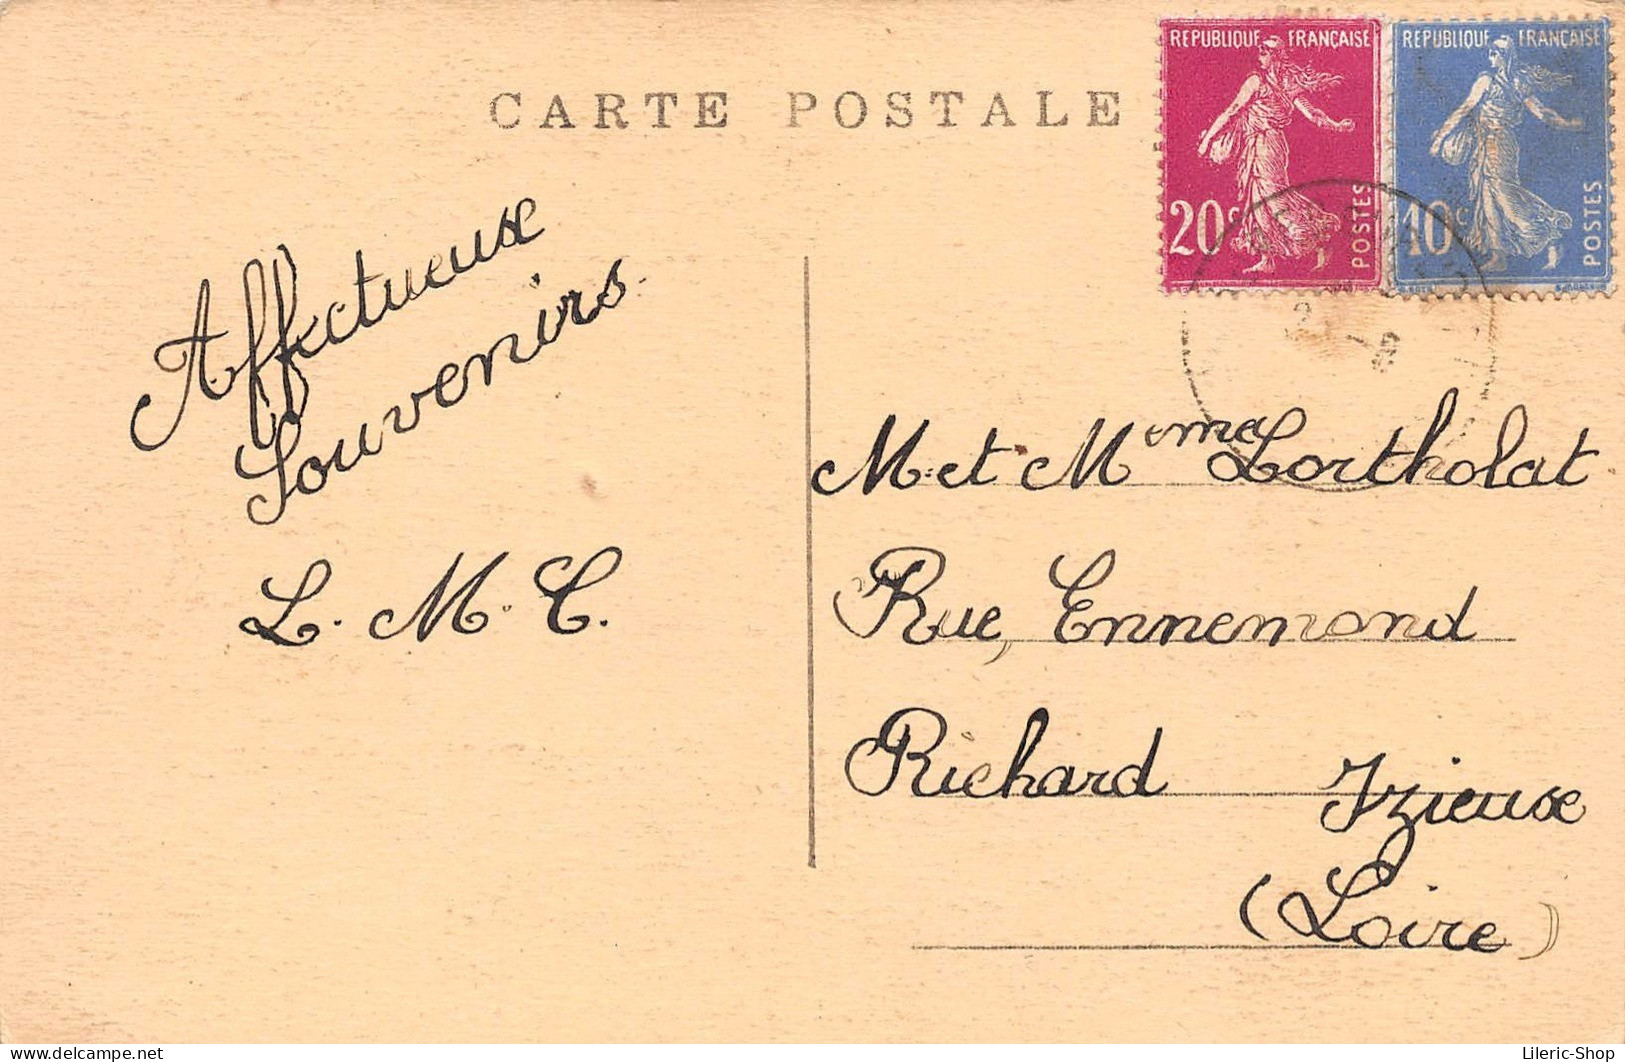 CARTE POSTALE
REPUBLIQUE FRANÇAISE
20c
POSTES
REPUBLIQUE FRANÇAISE
10c
POSTES
Affectueux
Souvenirs.
L. M. C.
M. et Mme Lortholat
Rue, Ennemond
Richard Izieux
(Loire)
Lileric-Shop